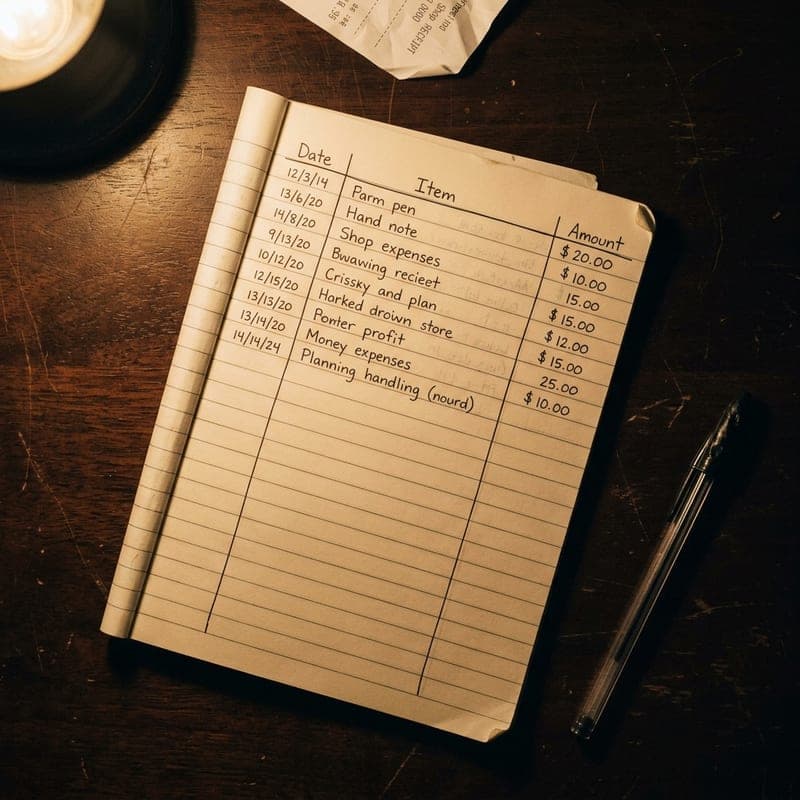 Shop RECEIPT
Date Item Amount
12/3/14 Parm pen $20.00
13/6/20 Hand note $10.00
14/8/20 Shop expenses 15.00
9/13/20 Bwawing recieet $15.00
10/12/20 Crissky and plan $12.00
12/15/20 Harked drown store $15.00
13/13/20 Ponter profit 25.00
13/14/20 Money expenses $10.00
14/14/24 Planning handling (nourd)